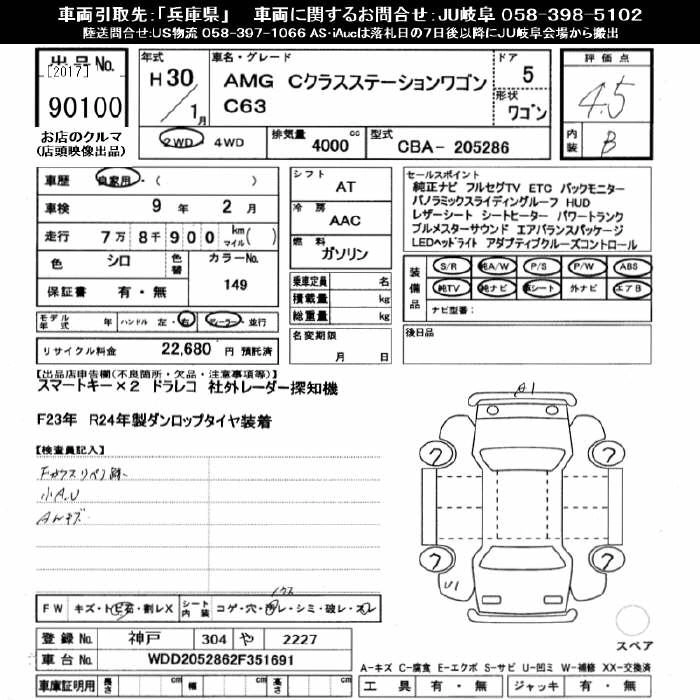 車両引取先:「兵庫県」 車両に関するお問合せ:JU岐阜 058-398-5102
陸送問合せ:US物流 058-397-1066 AS・iAucは落札日の7日後以降にJU岐阜会場から搬出
出品No.
[2017]
90100
お店のクルマ
(店頭映像出品)
年式
H30/1月
車名・グレード
AMG Cクラスステーションワゴン
C63
ドア
5
形状
ワゴン
2WD・4WD
排気量 4000 cc
型式 CBA- 205286
評価点
4.5
内装 B
車歴 自家用・( )
車検 9年 2月
走行 7万8千900 km マイル( )
色 シロ 色替 カラーNo.
保証書 有・無 149
モデル年式 年 ハンドル 左・右 ディーラー・並行
リサイクル料金 22,680 円 預託済
シフト AT
冷房 AAC
燃料 ガソリン
乗車定員 名
積載量 kg
総重量 kg
名変期限
月 日
セールスポイント
純正ナビ フルセグTV ETC バックモニター
パノラミックスライディングルーフ HUD
レザーシート シートヒーター パワートランク
ブルメスターサウンド エアバランスパッケージ
LEDヘッドライト アダプティブクルーズコントロール
装備品
S/R 純A/W P/S P/W ABS
純TV 純ナビ 革シート 外ナビ エアB
ナビ型番:
後日品
【出品店申告欄(不良箇所・欠品・注意事項等)】
スマートキー×2 ドラレコ 社外レーダー探知機
F23年 R24年製ダンロップタイヤ装着
【検査員記入】
Fガラスリペア跡
小A.U
AWキズ
A1
7
7
7
7
U1
スペア
FW キズ・トビ石・割レX シート内装 コゲ・穴・汚レ・シミ・破レ・スレ
登録No. 神戸 304 や 2227
車台No. WDD2052862F351691
車庫証明用 長さ cm 幅 cm 高さ cm
A-キズ C-腐食 E-エクボ S-サビ U-凹ミ W-補修 XX-交換済
工具 有・無 ジャッキ 有・無